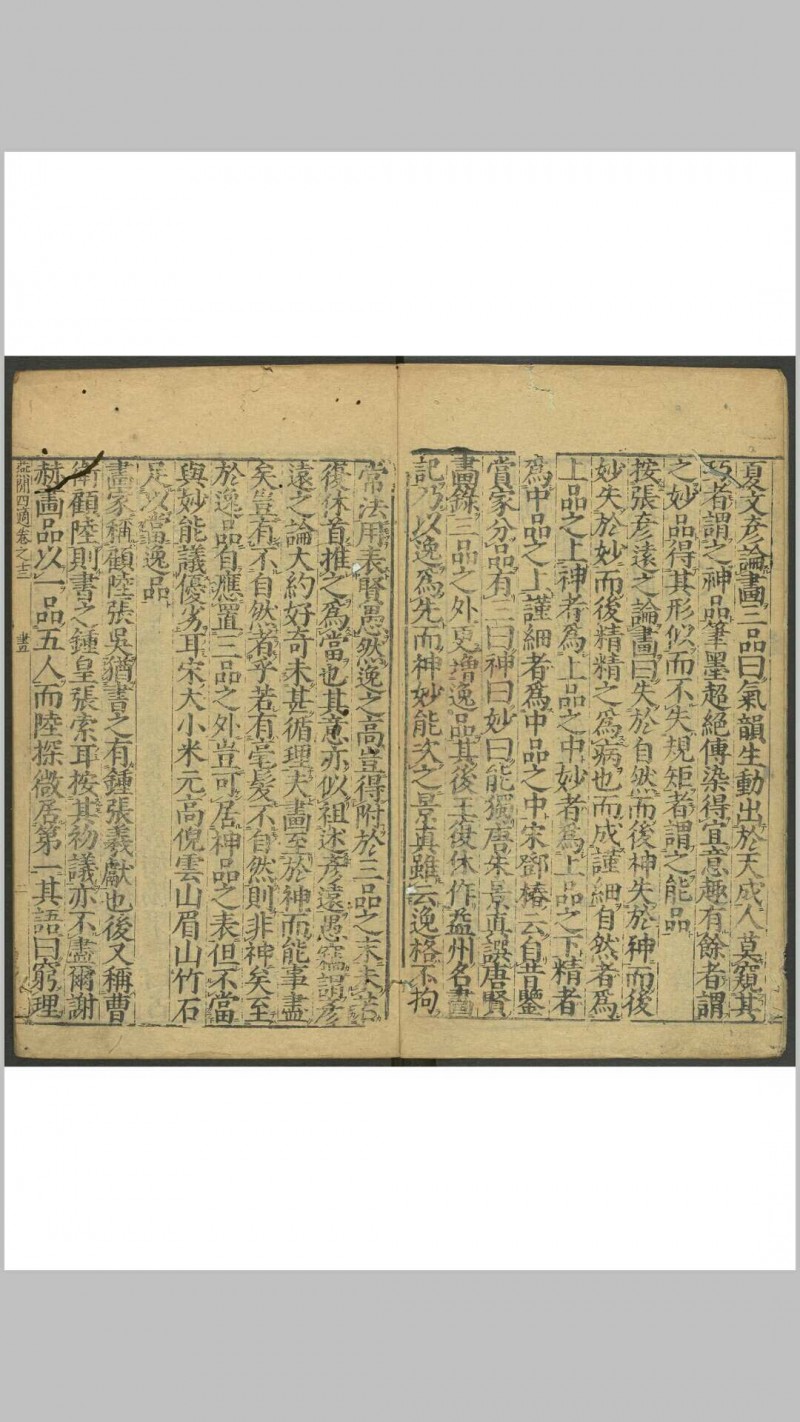 夏文彥論畫三品曰氣韻生動出於天成人莫窺其
巧者謂之神品筆墨超絕傳染得宜意趣有餘者謂
之妙品得其形似而不失規矩者謂之能品
按張彥遠之論畫曰失於自然而後神失於神而後
妙失於妙而後精精之為病也而成謹細自然者為
上品之上神者為上品之中妙者為上品之下精者
為中品之上謹細者為中品之中宋鄧椿云自昔鑒
賞家分品有三曰神曰妙曰能獨唐朱景真譔唐賢
畫錄三品之外更增逸品其後王復休作益州名畫
記乃以逸為先而神妙能次之景真雖云逸格不拘
常法用表賢愚然逸之高豈得附於三品之末未若
復休首推之為當也其意亦似祖述彥遠愚竊謂彥
遠之論大約好奇未甚循理夫畫至於神而能事盡
矣豈有不自然者乎若有毫髮不自然則非神矣至
於逸品自應置三品之外豈可居神品之表但不當
與妙能議優劣耳宋大小米元高倪雲山眉山竹石
足以當逸品
畫家稱顧陸張吳猶書之有鍾張羲獻也後又稱曹
衛顧陸則書之鍾皇張索耳按其初議亦不盡爾謝
赫畫品以一品五人而陸探微居第一其語曰窮理
燕閒四適卷之十三 畫 二